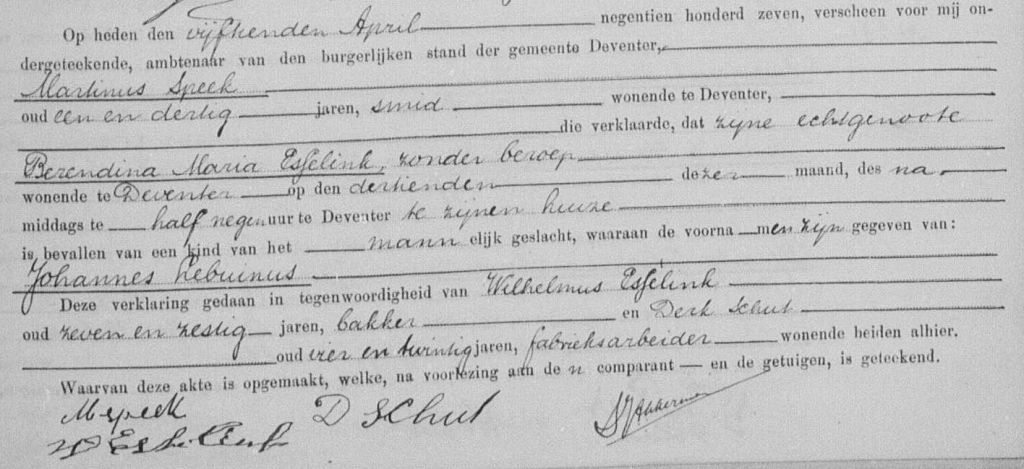 Op heden den vijftienden April negentien honderd zeven, verscheen voor mij on-
dergeteekende, ambtenaar van den burgerlijken stand der gemeente Deventer,
Martinus Speek
oud een en dertig jaren, smid wonende te Deventer,
die verklaarde, dat zijne echtgenoote
Berendina Maria Esselink, zonder beroep
wonende te Deventer op den dertienden dezer maand, des na
middags te half negen uur te Deventer te zijnen huize
is bevallen van een kind van het mann elijk geslacht, waaraan de voorna men zijn gegeven van:
Johannes Lebuinus
Deze verklaring gedaan in tegenwoordigheid van Wilhelmus Esselink
oud zeven en zestig jaren, bakker en Derk Schut
oud vier en twintig jaren, fabrieksarbeider wonende beiden alhier.
Waarvan deze akte is opgemaakt, welke, na voorlezing aan de n comparant — en de getuigen, is geteekend.
M Speek D Schut
W Esselink